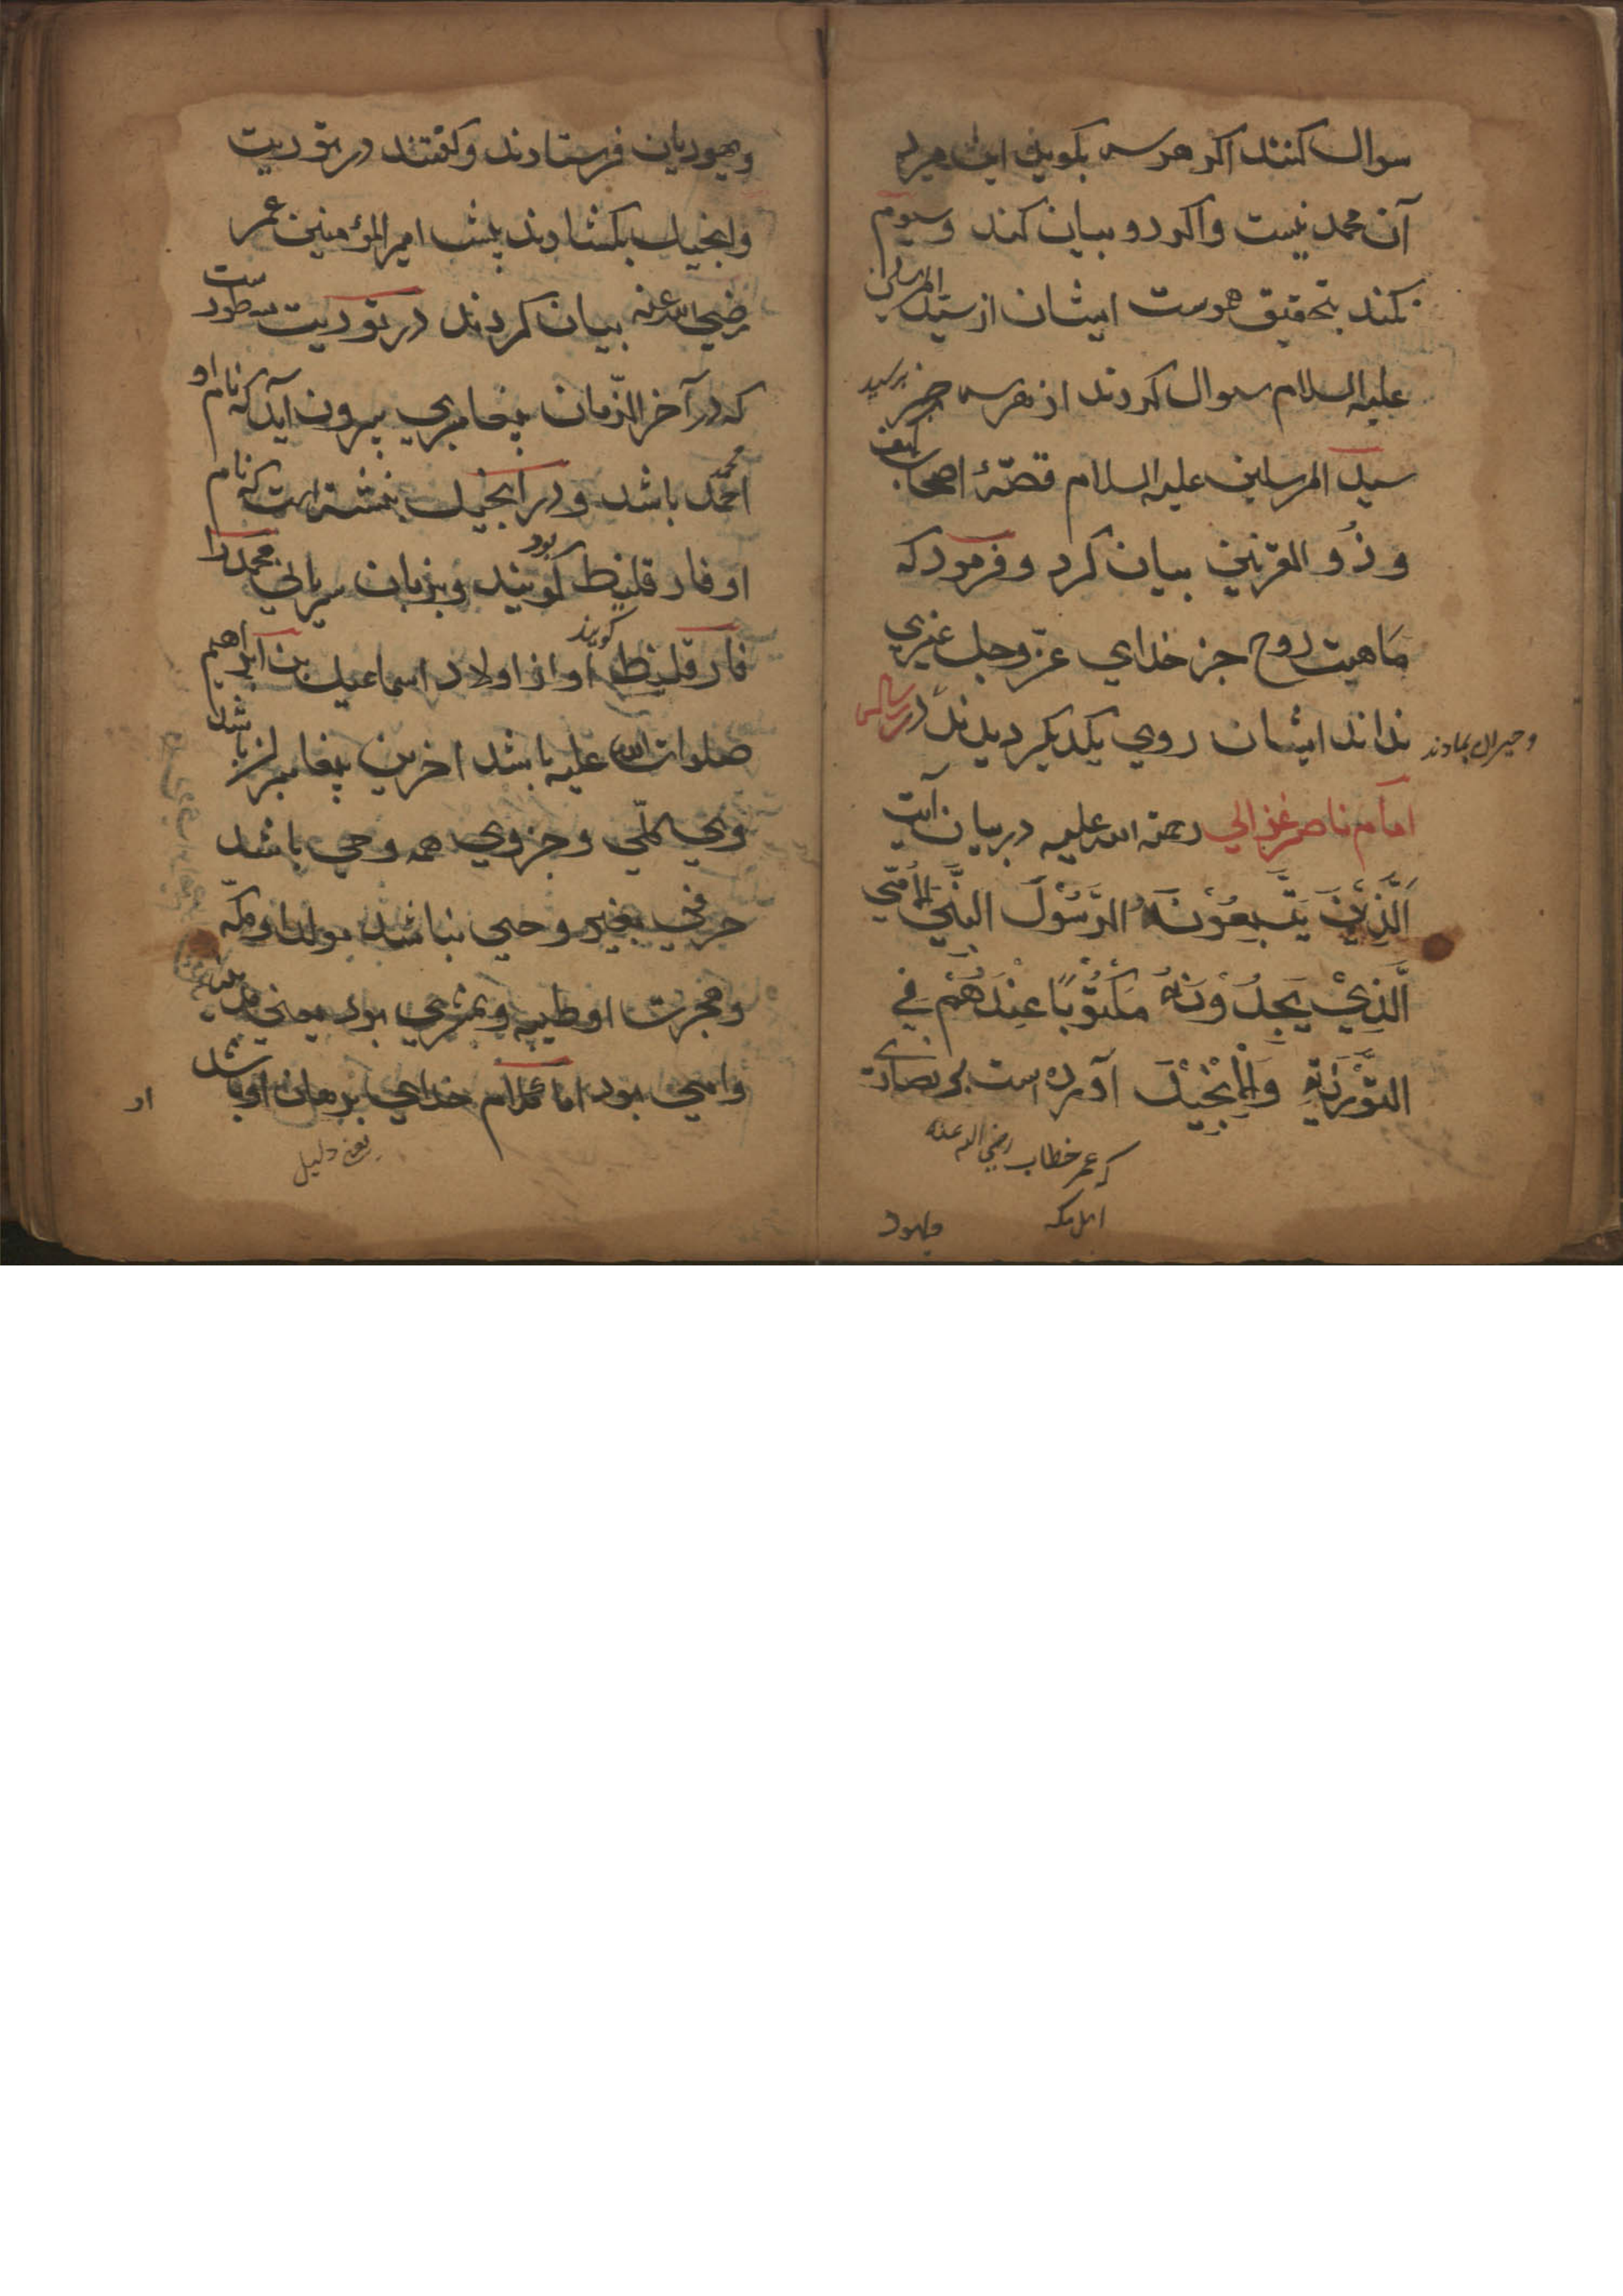 سوال کنند اکر هر سه بکوید این مرد
آن محمد نیست واکر دو بیان کند وسیوم
نکند بتحقیق هوست ایشان از سید المرسلین
علیه السلام سوال کردند از هر سه چیز پرسید
سید المرسلین علیه السلام قصّهٔ اصحاب کهف
وذُو القرنین بیان کرد وفرمود که
مَاهیت روح جز خدای عزّ وجل غیری
نداند ایشان روی یکدیکر دیدند در رسالهٔ
وحیران بماندند
امام ناصر غزالی رحمة الله علیه در بیان آیت
اَلَّذِیْنَ یَتَّبِعُوْنَهُ الرَّسُوْلَ النَّبِیَّ الْاُمِّی
الَّذِیْ یَجِدُوْنَهُ مَکْتُوْبًا عِنْدَهُمْ فِی
التَّوْرَیةِ وَالْاِنْجِیْلَ آورده است که نصارای
که عمر خطاب رضی الله عنه
اهل مکه
ویهود
ویهودیان فرستادند وکفتند در توریت
وانجیل بکشادند پیش امیر المؤمنین عمر
رضی الله عنه بیان کردند در توریت مسطورست
که در آخر الزّمان پیغامبری بیرون آید که نام او
محمد
احمد باشد ودر انجیل نبشته است که نام
او فارقلیط کویند وبزبان سریانی محمد را
بود
فارقلیط او از اولاد اسماعیل بن ابراهیم
کویند
صلوات الله علیه باشد اخرین پیغامبران باشد
وی کلّی وجزوی همه وحی باشد
حرفی بغیر وحی نباشد مولد او مکّه
وهجرت او طیبه ویثربی بود یعنی مدینه
وامی بود اما کلام خدای برهان او باشد
یعنی دلیل
از